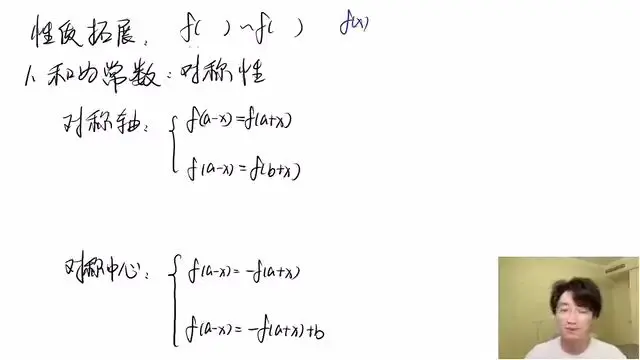 性质拓展: f( )~f( ) f(x)
1、和为常数:对称性
对称轴: { f(a-x)=f(a+x)
f(a-x)=f(b+x)
对称中心: { f(a-x)=-f(a+x)
f(a-x)=-f(a+x)+b